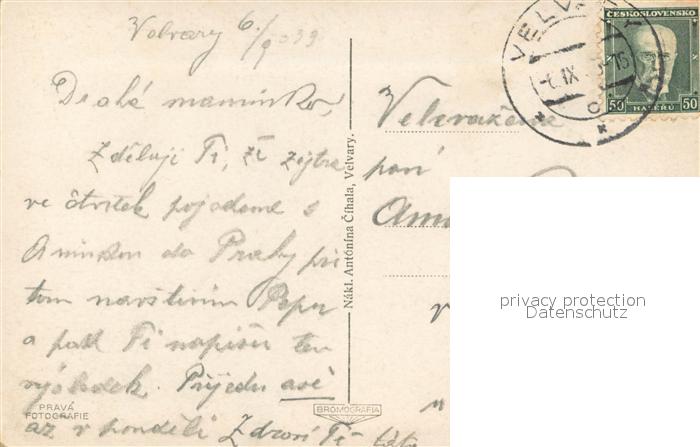 Velvary 6./9 33
Drahá maminko,
Zděluji Ti, že zýtra
ve čtvrtek pojedeme s
Aninkou do Prahy při
tom navštívím Pepu
a pak Ti napíšu ten
výsledek. Přijedu asi
až v pondělí Zdraví Tě
PRAVÁ
FOTOGRAFIE
Nákl. Antónína Číhala, Velvary.
BROMOGRAFIA
VELVARY
ČESKOSLOVENSKO
50 HALÉŘŮ 50
Velevážená
paní
privacy protection
Datenschutz